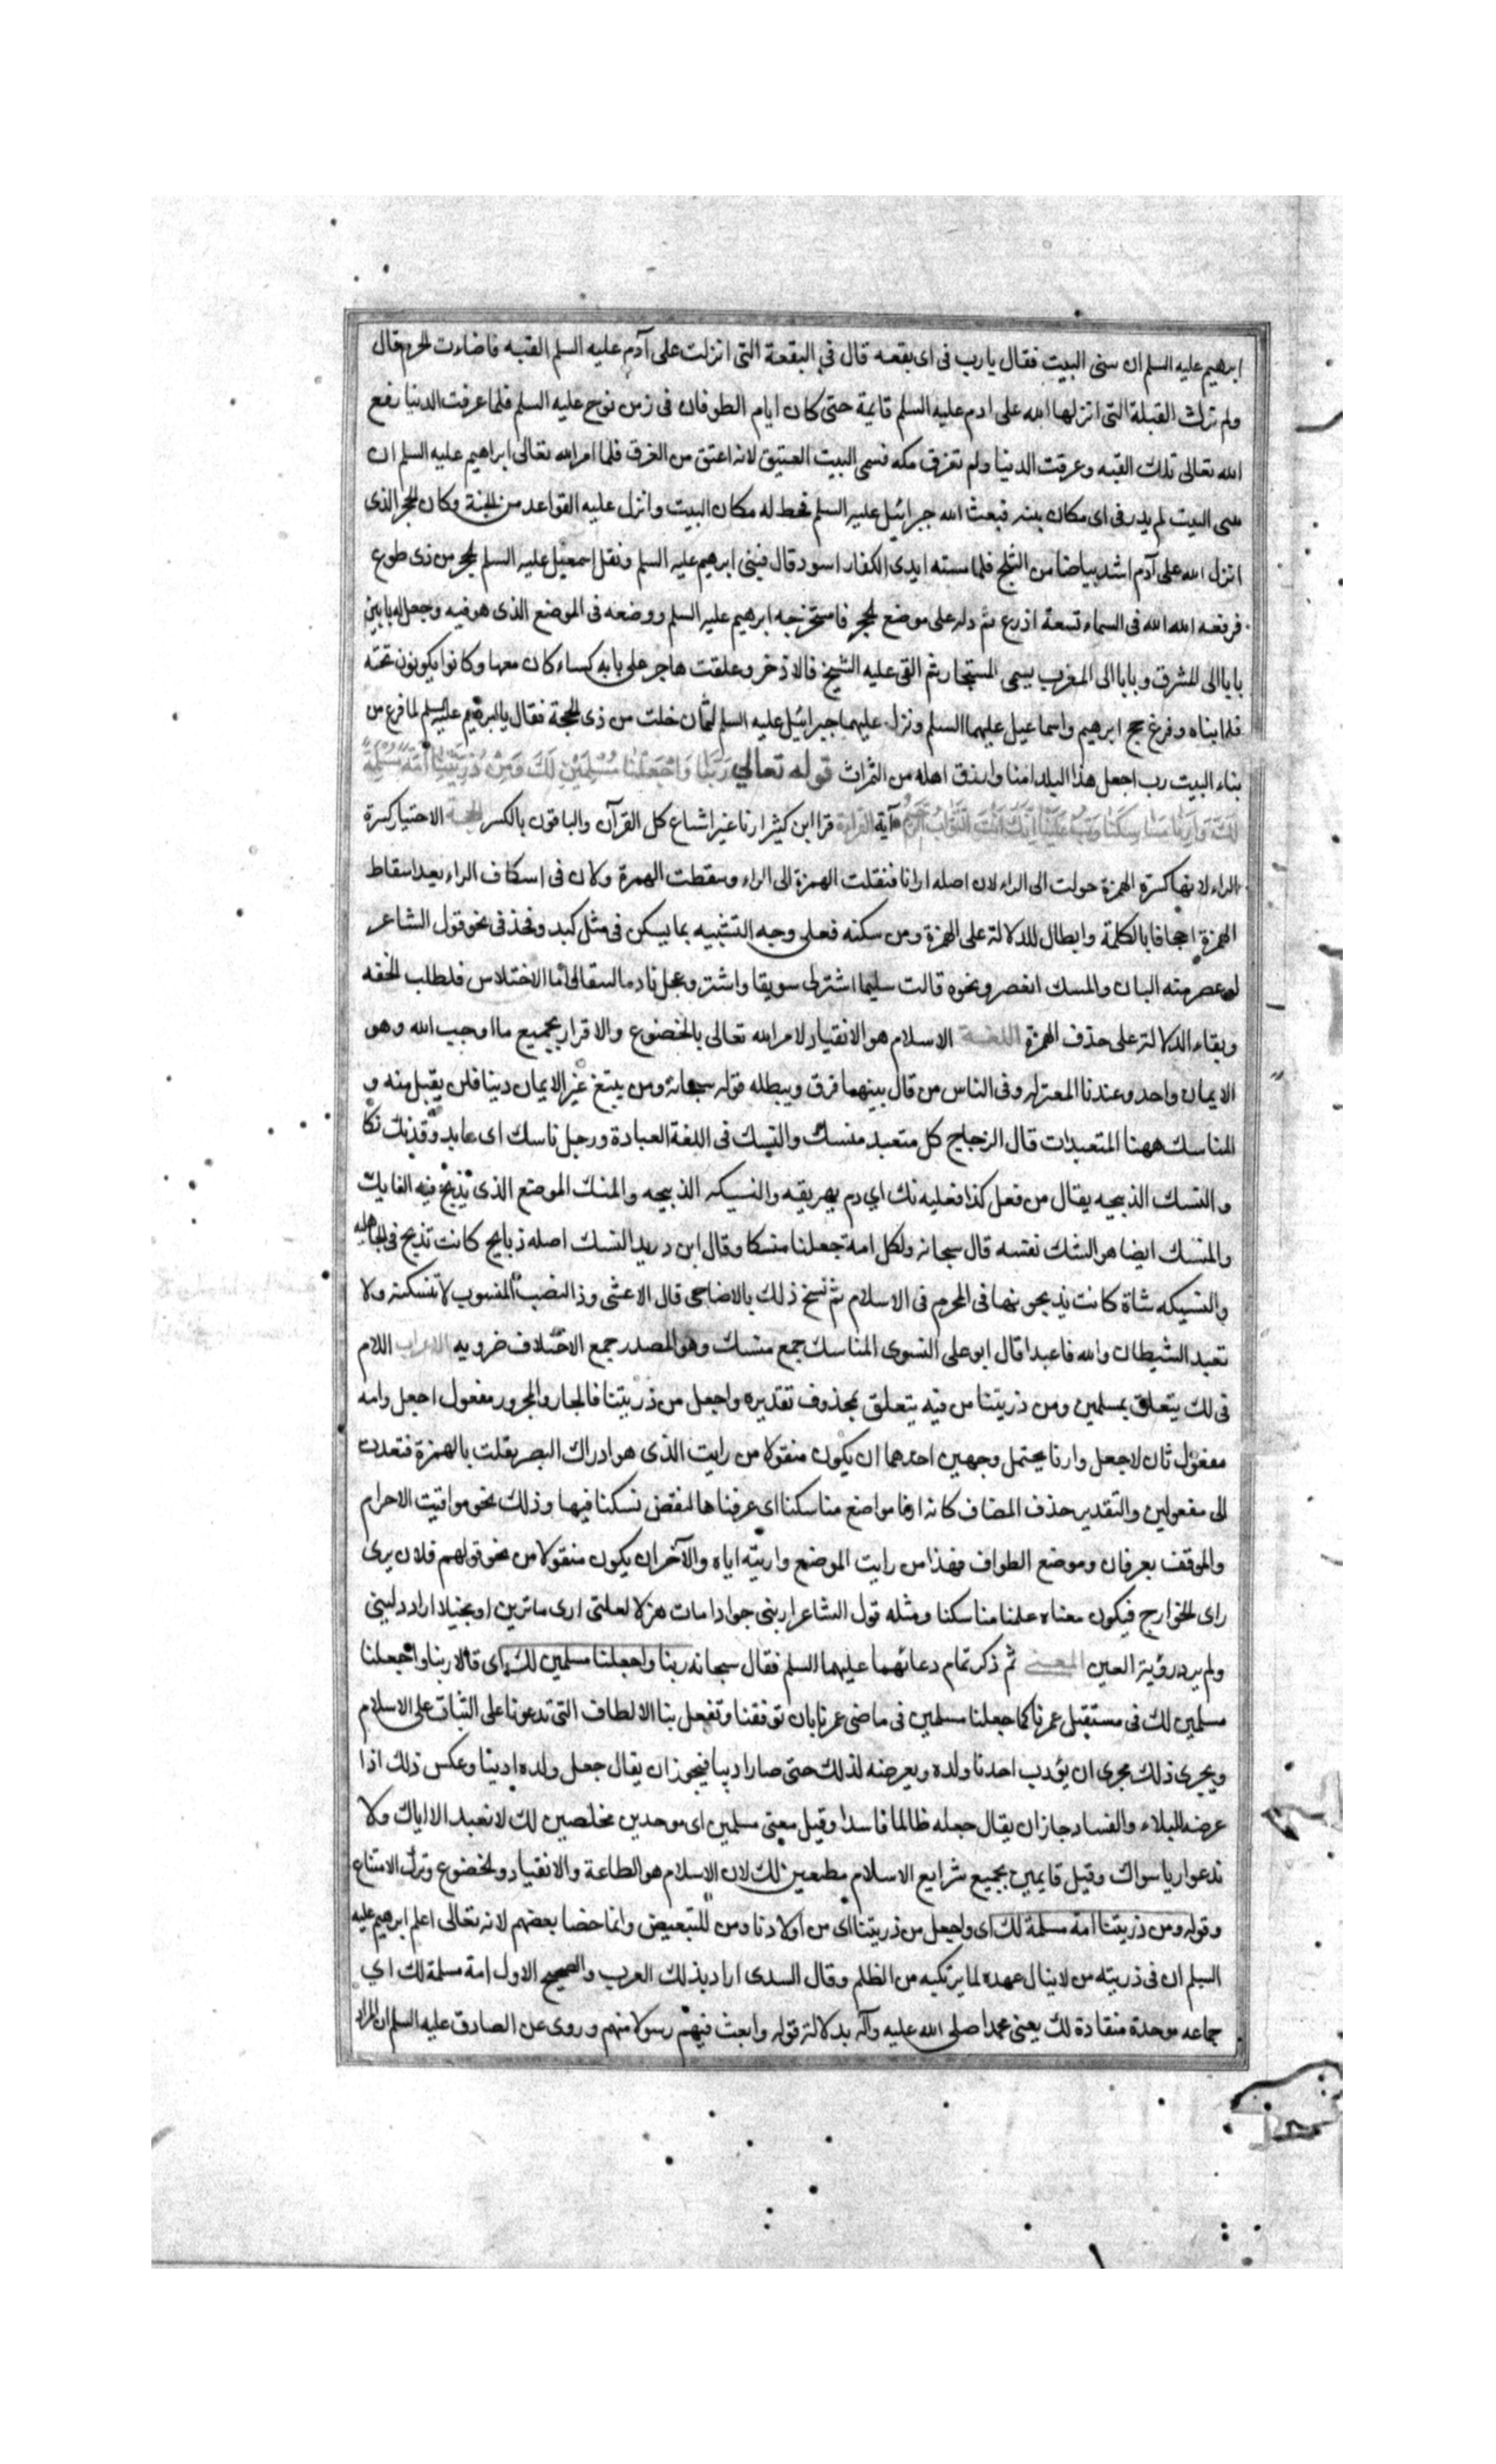 ابرهيم عليه السلم ان يبنى البيت فقال يا رب فى اى بقعه قال فى البقعة التى انزلت على آدم عليه السلم القبه فاضاءت الحرم قال
ولم تزل القبلة التى انزلها الله على ادم عليه السلم قايمة حتى كان ايام الطوفان فى زمن نوح عليه السلم فلما غرقت الدنيا رفع
الله تعالى تلك القبه وغرقت الدنيا ولم تغرق مكه فسمى البيت العتيق لانه اعتق من الغرق فلما امر الله تعالى ابراهيم عليه السلم ان
يبنى البيت لم يدر فى اى مكان يبنيه فبعث الله جبرائيل عليه السلم فخط له مكان البيت وانزل عليه القواعد من الجنة وكان الحجر الذى
انزل الله على آدم اشد بياضا من الثلج فلما مسته ايدى الكفار اسود قال فبنى ابرهيم عليه السلم ونقل اسمعيل عليه السلم الحجر من ذى طوى
فرفعه الله الله فى السماء تسعة اذرع ثم دله على موضع الحجر فاستخرجه ابرهيم عليه السلم ووضعه فى الموضع الذى هو فيه وجعل له بابين
بابا الى المشرق وبابا الى المغرب يسمى المستجار ثم القى عليه الشيح فالاذخر وعلقت هاجر على بابه كساء كان معها وكانوا يكونون تحته
فلما بناه وفرغ حج ابرهيم واسماعيل عليهما السلم ونزل عليهما جبرائيل عليه السلم لثمان خلت من ذى الحجة فقال يا ابرهيم عليه السلم لما فرغ من
بناء البيت رب اجعل هذا البلد امنا وارزق اهله من الثمرات قوله تعالى رَبَّنَا وَاجْعَلْنَا مُسْلِمَيْنِ لَكَ وَمِنْ ذُرِّيَّتِنَا أُمَّةً مُسْلِمَةً
لَكَ وَأَرِنَا مَنَاسِكَنَا وَتُبْ عَلَيْنَا إِنَّكَ أَنْتَ التَّوَّابُ الرَّحِيمُ آية القراءة قرا ابن كثير ارنا غير اشباع كل القرآن والباقون بالكسر الحجة الاختيار كسرة
الراء لانها كسرة الهمزة حولت الى الراء لان اصله ارانا فنقلت الهمزة الى الراء وسقطت الهمزة ولان فى اسكان الراء بعد اسقاط
الهمزة اجحافا بالكلمة وابطال للدلالة على الهمزة ومن سكنه فعلى وجه التشبيه بما يسكن فى مثل كبد وفخذ فى نحو قول الشاعر
لو عصر منه البان والمسك انعصر ونحوه قالت سليما اشتر لى سويقا واشتر وعجل نادما اما الاختلاس فلطلب الخفه
وبقاء الدلالة على حذف الهمزة اللغة الاسلام هو الانقياد لامر الله تعالى بالخضوع والاقرار بجميع ما اوجب الله وهو
الايمان واحد وعندنا المعتزله وفى الناس من قال بينهما فرق ويبطله قوله سبحانه ومن يبتغ غير الايمان دينا فلن يقبل منه و
المناسك ههنا المتعبدات قال الزجاج كل متعبد منسك والنسك فى اللغة العبادة ورجل ناسك اى عابد وقد نسك نسكا
والنسك الذبيحه يقال من فعل كذا فعليه نسك اي دم يهريقه والنسيكه الذبيحه والمنسك الموضع الذى تذبح فيه النسايك
والمنسك ايضا هو النسك نفسه قال سبحانه ولكل امة جعلنا منسكا وقال ابن دريد النسك اصله ذبايح كانت تذبح فى الجاهليه
والنسيكه شاة كانت يذبحونها فى المحرم فى الاسلام ثم نسخ ذلك بالاضاحى قال الاعشى وذا النصب المنسوب لا تنسكنه ولا
تعبد الشيطان والله فاعبدا قال ابو على النسوى المناسك جمع منسك وهو المصدر جمع الاختلاف ضروبه الاعراب اللام
فى لك يتعلق بمسلمين ومن ذريتنا من فيه يتعلق بمحذوف تقديره واجعل من ذريتنا فالجار والمجرور مفعول اجعل وامه
مفعول ثان لاجعل وارنا يحتمل وجهين احدهما ان يكون منقولا من رايت الذى هو ادراك البصر نقلت بالهمزة فتعدت
الى مفعولين والتقدير حذف المضاف كانه ارنا مواضع مناسكنا اى عرفناها لنقضى نسكنا فيها وذلك نحو مواقيت الاحرام
والموقف بعرفان وموضع الطواف فهذا من رايت الموضع واريته اياه والآخر ان يكون منقولا من نحو قولهم فلان يرى
راى الخوارج فيكون معناه علمنا مناسكنا ومثله قول الشاعر ارينى جوادا مات هزلا لعلنى ارى ما ترين او بخيلا اراد دلينى
ولم يرد رؤية العين المعنى ثم ذكر تمام دعائهما عليهما السلم فقال سبحانه ربنا واجعلنا مسلمين لك اى قالا ربنا واجعلنا
مسلمين لك فى مستقبل عمرنا كما جعلنا مسلمين فى ماضى عمرنا بان توفقنا وتفعل بنا الالطاف التى تدعونا على الثبات على الاسلام
ويجرى ذلك مجرى ان يؤدب احدنا ولده ويعرضه لذلك حتى صار اديبا فيجوز ان يقال جعل ولده اديبا وعكس ذلك اذا
عرضه للبلاء والفساد جاز ان يقال جعله ظالما فاسدا وقيل معنى مسلمين اى موحدين مخلصين لك لا نعبد الا اياك ولا
ندعوا ربا سواك وقيل قايمين بجميع شرايع الاسلام مطيعين لك لان الاسلام هو الطاعة والانقياد والخضوع وترك الامتناع
وقوله ومن ذريتنا امة مسلمة لك اى واجعل من ذريتنا اى من اولادنا ومن للتبعيض وانما خصا بعضهم لانه تعالى اعلم ابرهيم عليه
السلم ان فى ذريته من لا ينال عهده لما يرتكبه من الظلم وقال السدى اراد بذلك العرب والصحيح الاول امة مسلمة لك اي
جماعه موحدة منقادة لك يعنى محمدا صلى الله عليه وآله بدلالة قوله وابعث فيهم رسولا منهم وروى عن الصادق عليه السلم ان المراد